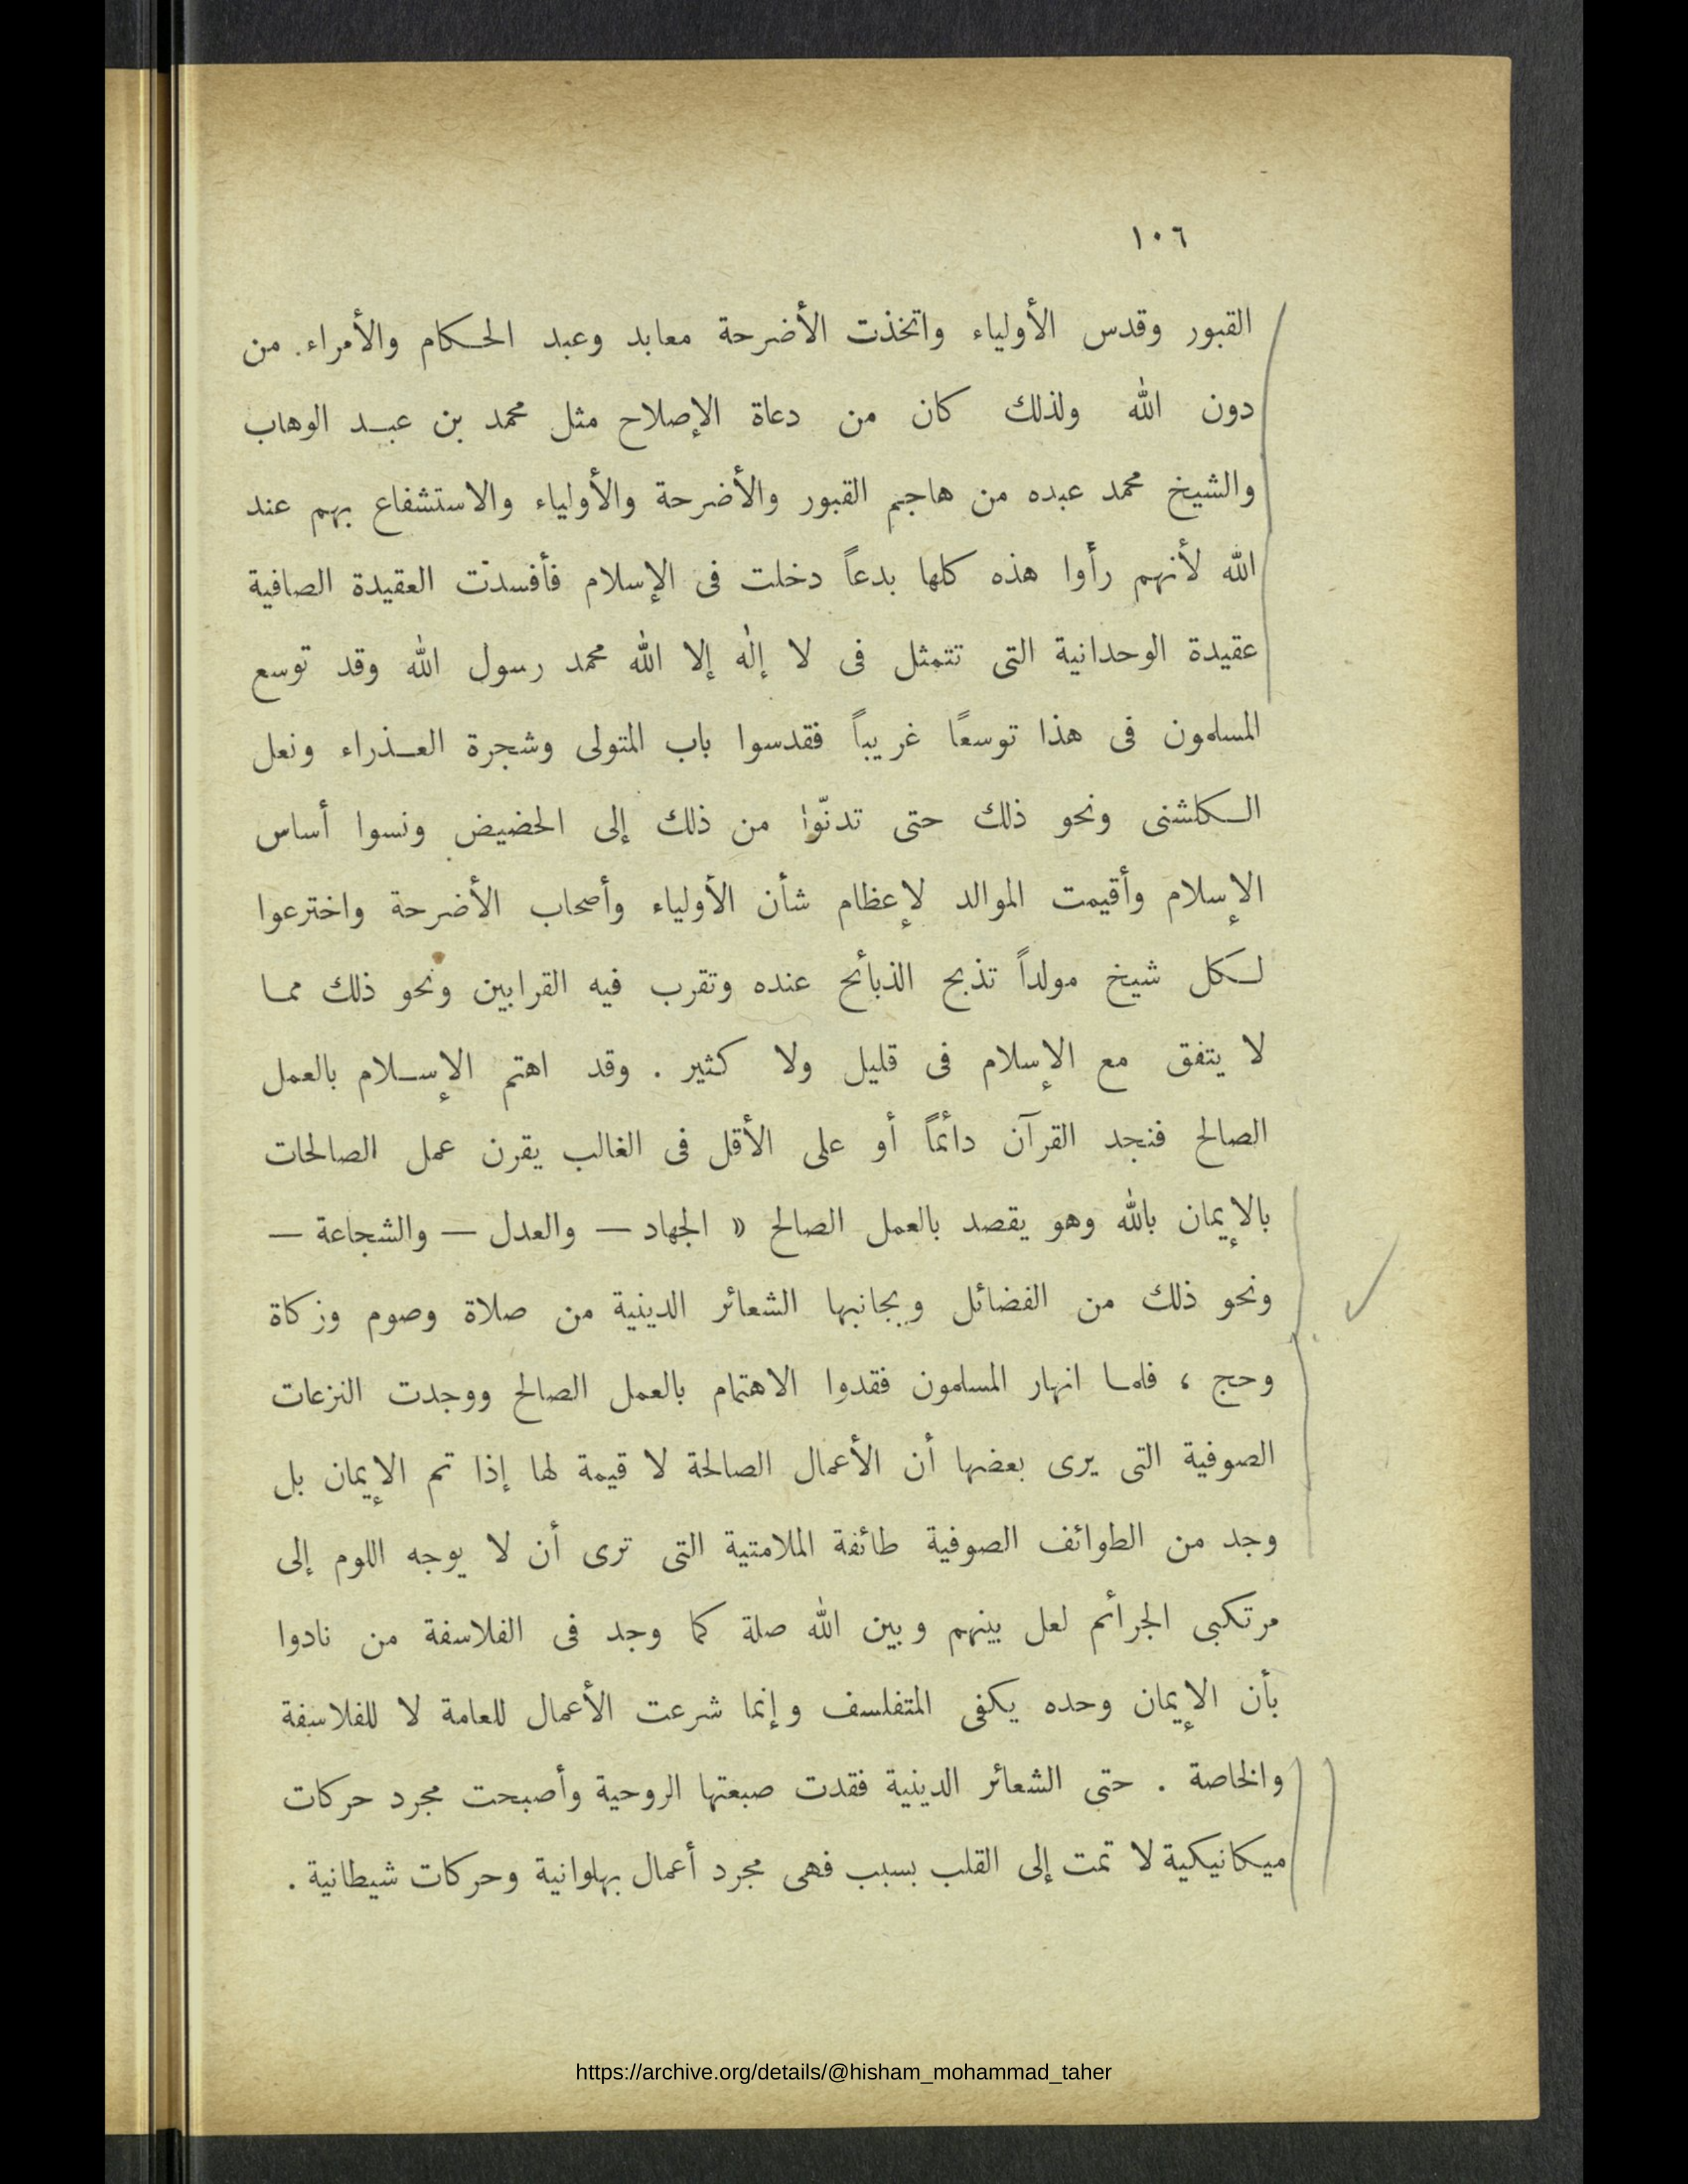 ١٠٦
القبور وقدس الأولياء واتخذت الأضرحة معابد وعبد الحكام والأمراء. من
دون الله ولذلك كان من دعاة الإصلاح مثل محمد بن عبد الوهاب
والشيخ محمد عبده من هاجم القبور والأضرحة والأولياء والاستشفاع بهم عند
الله لأنهم رأوا هذه كلها بدعاً دخلت فى الإسلام فأفسدت العقيدة الصافية
عقيدة الوحدانية التى تتمثل فى لا إله إلا الله محمد رسول الله وقد توسع
المسلمون فى هذا توسعًا غريباً فقدسوا باب المتولى وشجرة العذراء ونعل
الكلشنى ونحو ذلك حتى تدنّوا من ذلك إلى الحضيض ونسوا أساس
الإسلام وأقيمت الموالد لإعظام شأن الأولياء وأصحاب الأضرحة واخترعوا
لكل شيخ مولداً تذبح الذبائح عنده وتقرب فيه القرابين ونحو ذلك مما
لا يتفق مع الإسلام فى قليل ولا كثير . وقد اهتم الإسلام بالعمل
الصالح فنجد القرآن دائماً أو على الأقل فى الغالب يقرن عمل الصالحات
بالإيمان بالله وهو يقصد بالعمل الصالح « الجهاد — والعدل — والشجاعة —
ونحو ذلك من الفضائل وبجانبها الشعائر الدينية من صلاة وصوم وزكاة
وحج ، فلما انهار المسلمون فقدوا الاهتمام بالعمل الصالح ووجدت النزعات
الصوفية التى يرى بعضها أن الأعمال الصالحة لا قيمة لها إذا تم الإيمان بل
وجد من الطوائف الصوفية طائفة الملامتية التى ترى أن لا يوجه اللوم إلى
مرتكبى الجرائم لعل بينهم وبين الله صلة كما وجد فى الفلاسفة من نادوا
بأن الإيمان وحده يكفى المتفلسف وإنما شرعت الأعمال للعامة لا للفلاسفة
والخاصة . حتى الشعائر الدينية فقدت صبعتها الروحية وأصبحت مجرد حركات
ميكانيكية لا تمت إلى القلب بسبب فهى مجرد أعمال بهلوانية وحركات شيطانية .
https://archive.org/details/@hisham_mohammad_taher